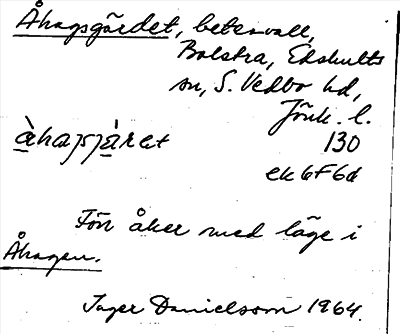 Åhagsgärdet, betesvall,
Bolstra, Edshults
sn, S. Vedbo hd,
Jönk. l.
àhagsjà̱ret 130
ek 6F6d
Förr åker med läge i
Åhagen.
Inger Danielsson 1964.